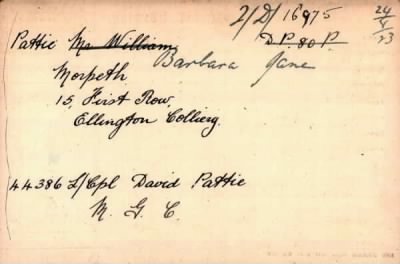 2/D/16975
24/4/23
Pattie Mr William D.P. 80 P.
Barbara Jane
Morpeth
15, First Row,
Ellington Colliery.
44386 L/Cpl David Pattie
M. G. C.